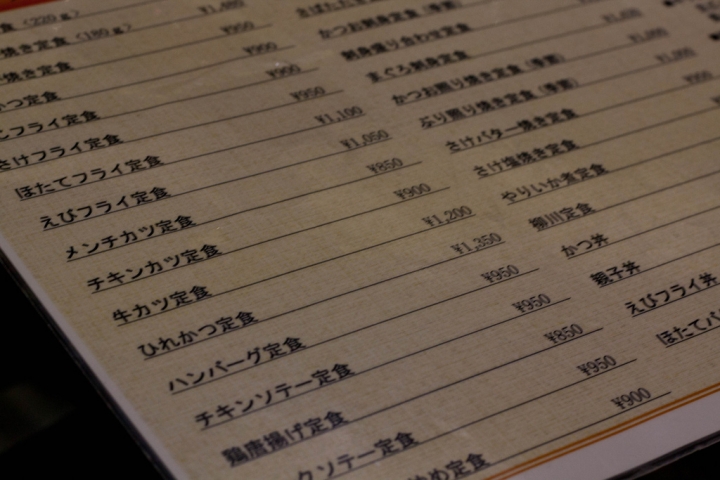 食 (220g)
焼き定食 (180g) ¥950
焼き定食 ¥950
かつ定食 ¥900
フライ定食 ¥900
さけフライ定食 ¥950
ほたてフライ定食 ¥1,100
えびフライ定食 ¥1,050
メンチカツ定食 ¥850
チキンカツ定食 ¥900
牛カツ定食 ¥1,200
ひれかつ定食 ¥1,350
ハンバーグ定食 ¥950
チキンソテー定食 ¥950
鶏唐揚げ定食 ¥850
クソテー定食 ¥950
め定食 ¥900
かつお刺身定食 (季節)
刺身盛り合わせ定食
まぐろ刺身定食
かつお照り焼き定食 (季節)
ぶり照り焼き定食 (季節)
さけバター焼き定食
さけ塩焼き定食
やりいか煮定食
柳川定食
かつ丼
親子丼
えびフライ丼
ほたてバ